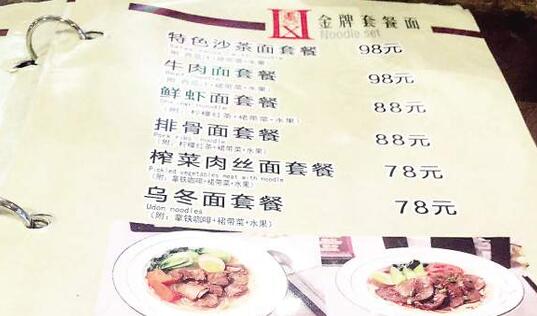 金牌套餐面
Noodle set
特色沙茶面套餐 98元
牛肉面套餐 98元
鲜虾面套餐 88元
(附:柠檬红茶+裙带菜+水果)
排骨面套餐 88元
Pork ribs noodle
(附:柠檬红茶+裙带菜+水果)
榨菜肉丝面套餐 78元
Pickled vegetables meat with noodle
(附:拿铁咖啡+裙带菜+水果)
乌冬面套餐 78元
Udon noodles
(附:拿铁咖啡+裙带菜+水果)